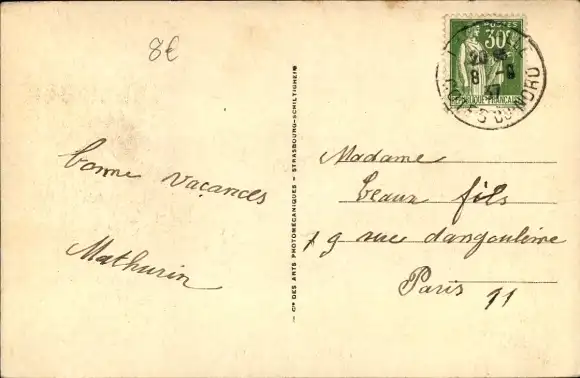 8€
bonne vacances
Mathurin
Cie DES ARTS PHOTOMÉCANIQUES - STRASBOURG-SCHILTIGHEIM
POSTES
30c
RÉPUBLIQUE FRANÇAISE
20
8 -8
37
DU NORD
Madame
Leaux fils
19 rue dangoulême
Paris 11